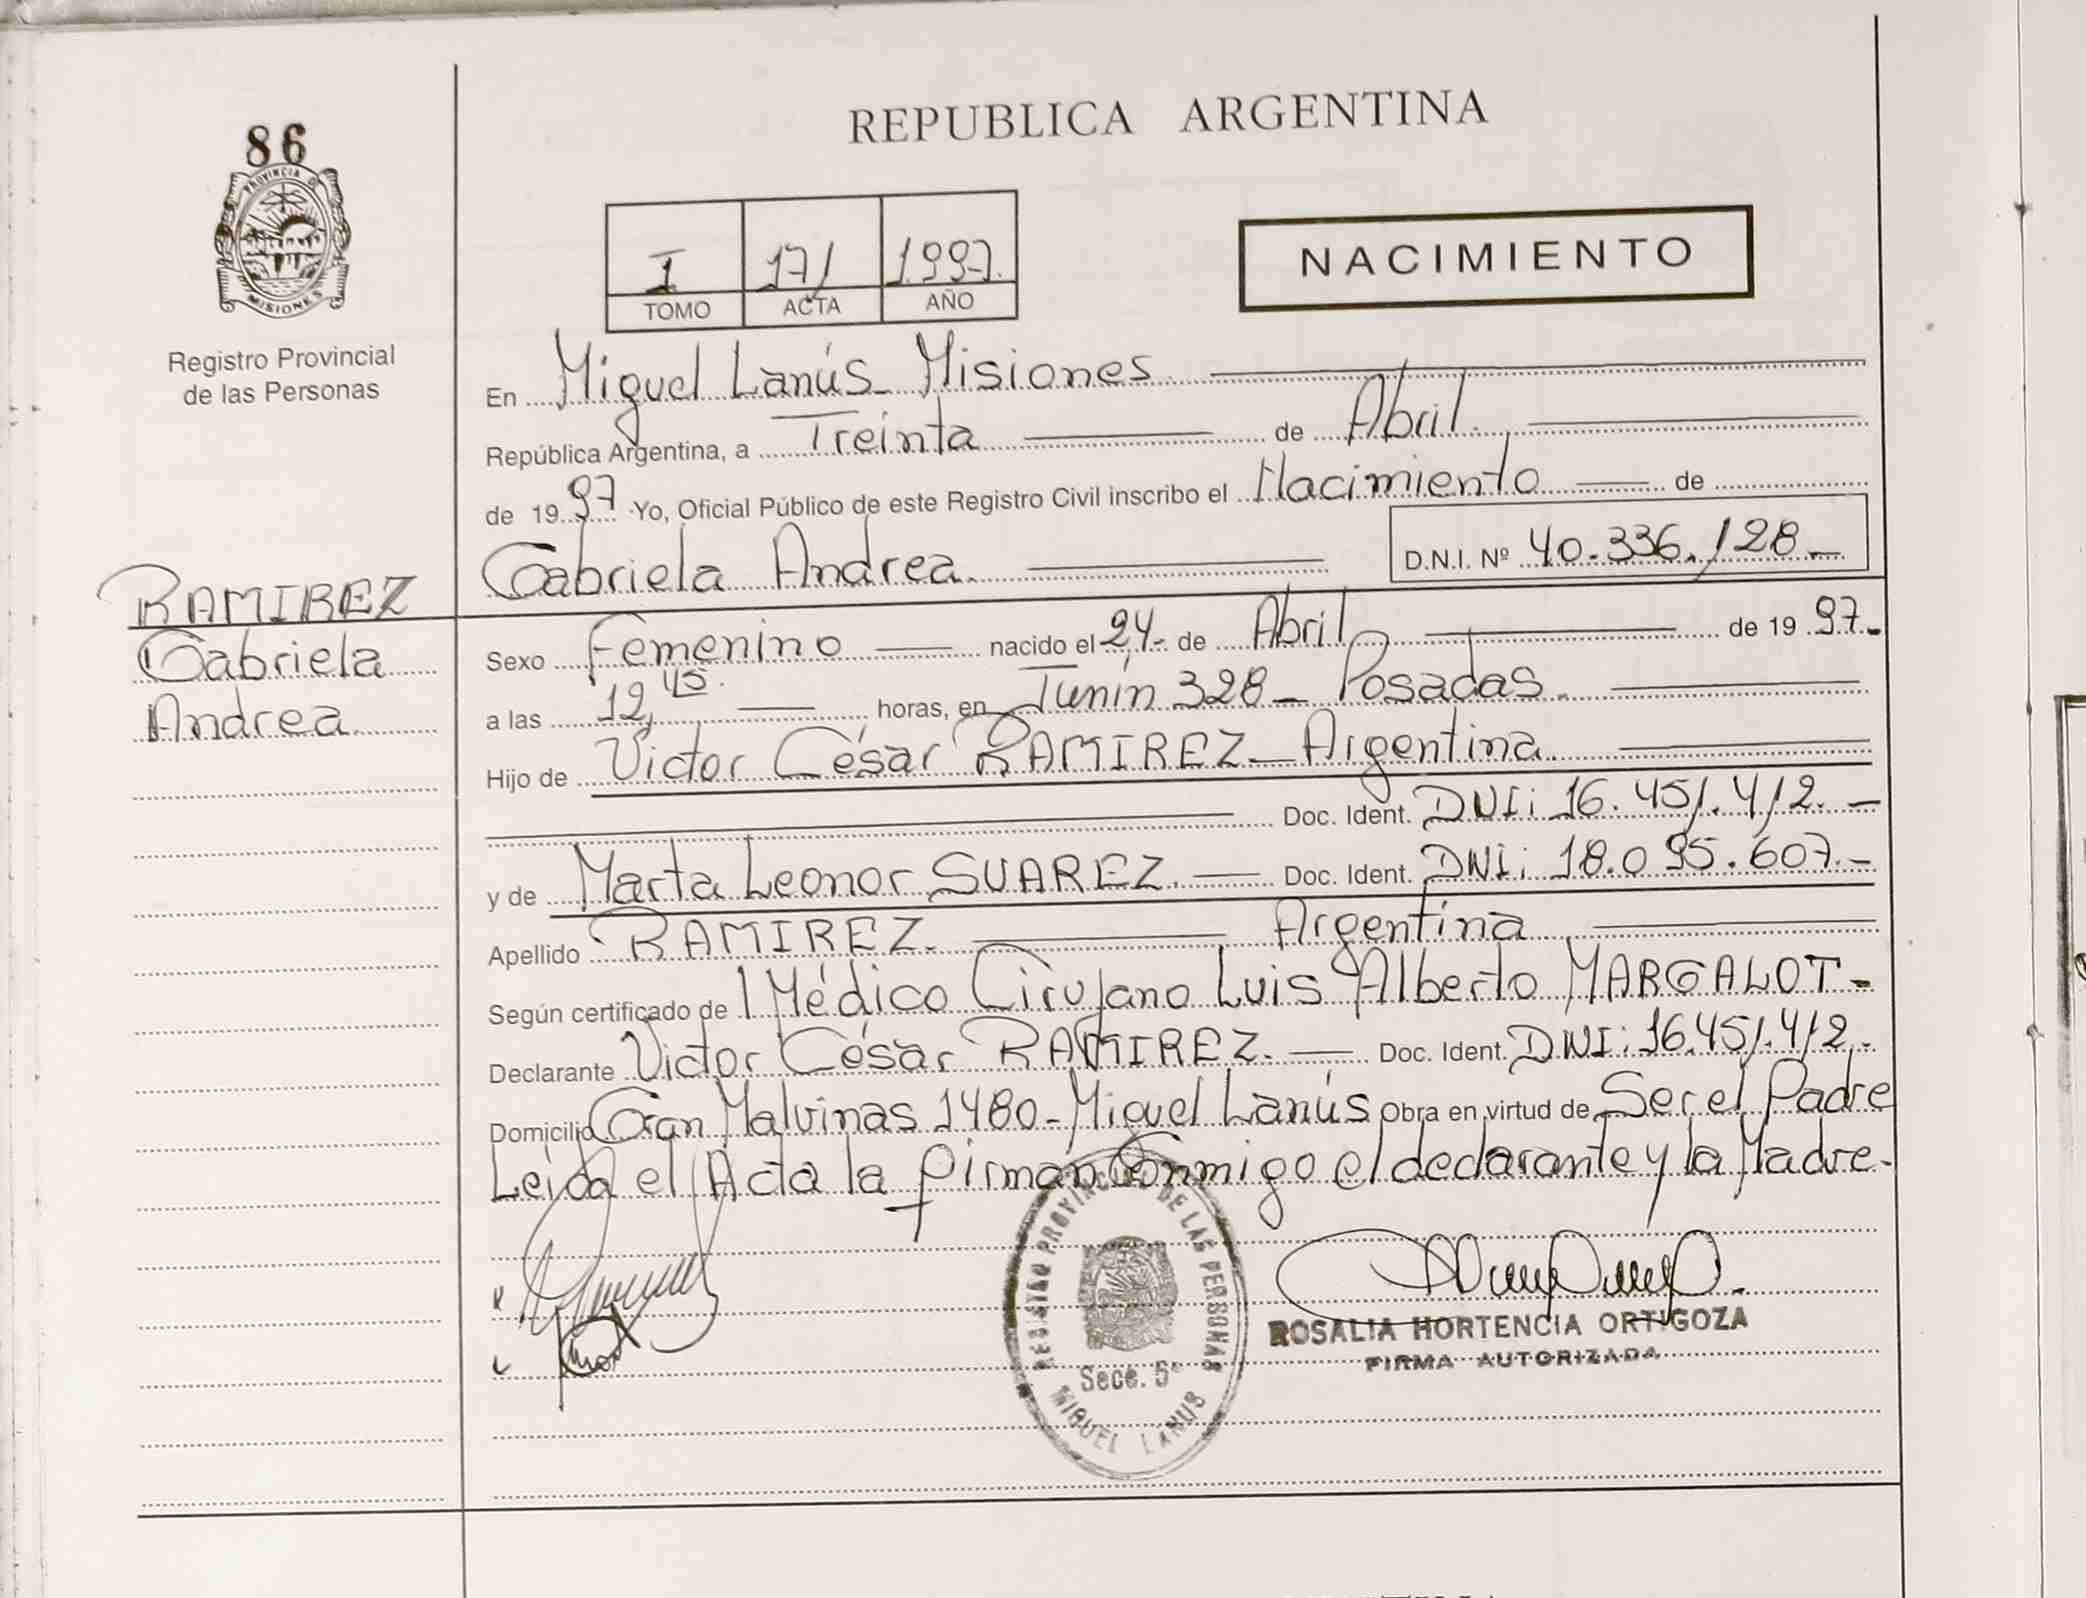 86
PROVINCIA D
MISIONES
Registro Provincial
de las Personas
REPUBLICA ARGENTINA
I 171 1997.
TOMO ACTA AÑO
NACIMIENTO
En Miguel Lanús - Misiones
República Argentina, a Treinta de Abril.
de 1997 Yo, Oficial Público de este Registro Civil inscribo el Nacimiento de
Gabriela Andrea. D.N.I. Nº 40.336.128-
RAMIREZ
Gabriela
Andrea.
Sexo Femenino nacido el 24- de Abril de 1997-
a las 12,45. horas, en Junín 328 - Posadas.
Hijo de Victor César RAMIREZ - Argentina
Doc. Ident. DNI: 16.451.412. -
y de Marta Leonor SUAREZ. Doc. Ident. DNI: 18.095.607.-
Apellido RAMIREZ. Argentina
Según certificado de l Médico Cirujano Luis Alberto MARGALOT-
Declarante Victor César RAMIREZ. Doc. Ident. DNI: 16.451.412.-
Domicilio Gran Malvinas 1480 - Miguel Lanús Obra en virtud de Ser el Padre
Leida el Acta la firman Conmigo el declarante y la Madre.
REGISTRO PROVINCIAL DE LAS PERSONAS
Secc. 5ª
MIGUEL LANUS
ROSALIA HORTENCIA ORTIGOZA
FIRMA AUTORIZADA